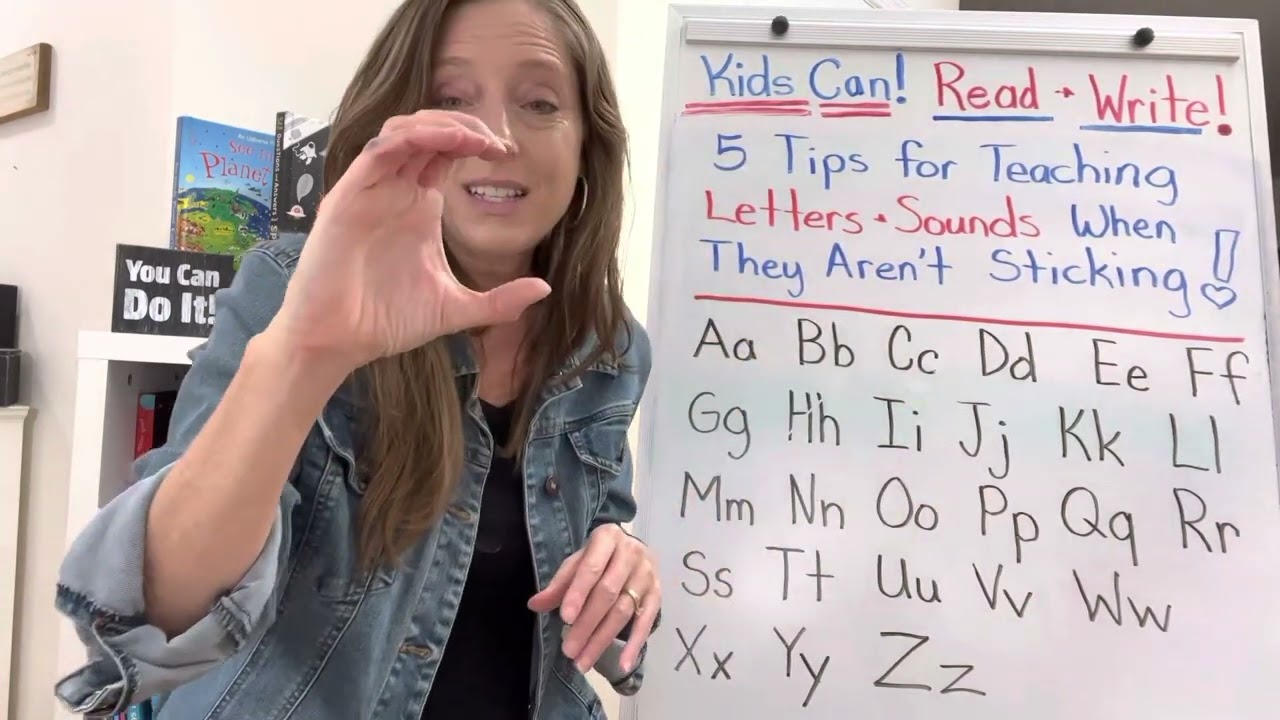 Kids Can! Read + Write!
5 Tips for Teaching
Letters + Sounds When
They Aren't Sticking!
Aa Bb Cc Dd Ee Ff
Gg Hh Ii Jj Kk Ll
Mm Nn Oo Pp Qq Rr
Ss Tt Uu Vv Ww
Xx Yy Zz
An Usborne
See
Planet
Questions and Answers
You Can
Do It!